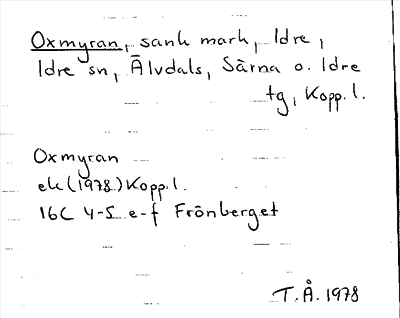 Oxmyran, sank mark, Idre,
Idre sn, Älvdals, Särna o. Idre
tg, Kopp. l.
Oxmyran
ek (1978) Kopp. l.
16C 4-5 e-f Frönberget
T.Å. 1978